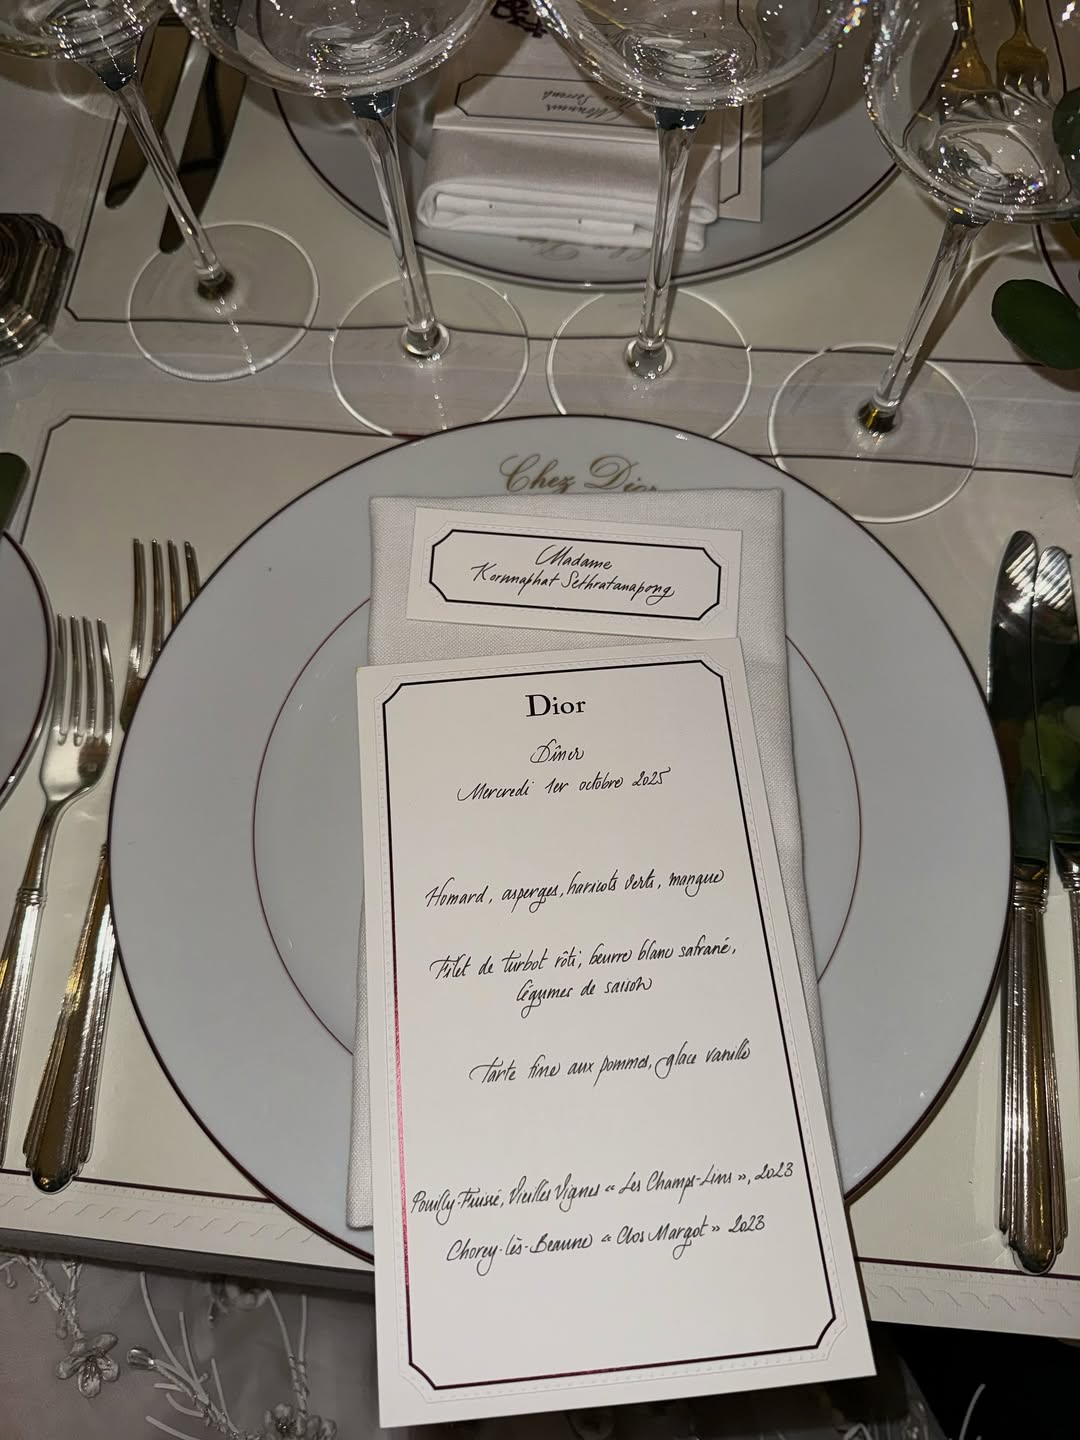 Chez Dior
Madame
Kornnaphat Sethratanapong
Dior
Dîner
Mercredi 1er octobre 2025
Homard, asperges, haricots verts, mangue
Filet de turbot rôti, beurre blanc safrané,
légumes de saison
Tarte fine aux pommes, glace vanille
Pouilly-Fuissé, Vieilles Vignes « Les Champs-Lins », 2023
Chorey-lès-Beaune « Clos Margot » 2023